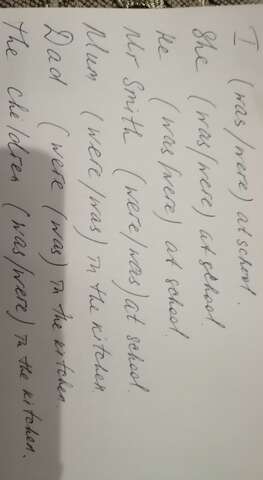 I (was/were) at school.
She (was/were) at school.
He (was/were) at school.
Mr Smith (were/was) at school.
Mum (were/was) in the kitchen.
Dad (were (was) in the kitchen.
The children (was/were) in the kitchen.